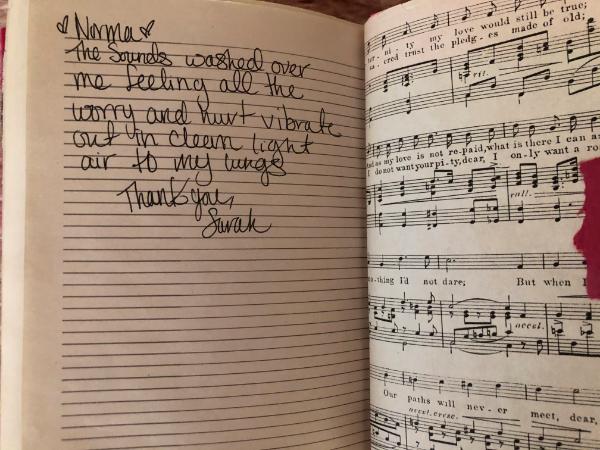 Norma
The Sounds washed over
me feeling all the
worry and hurt vibrate
out in clean light
air to my lungs
Thank you,
Sarah
ni - ty my love would still be true;
cred trust the pledg - es made of old;
rit.
as my love is not re-paid, what is there I can
I do not want your pi-ty, dear, I on-ly want a
rall.
thing I'd not dare; But when I
accel.
Our paths will nev - er meet, dear,
accel. cresc.